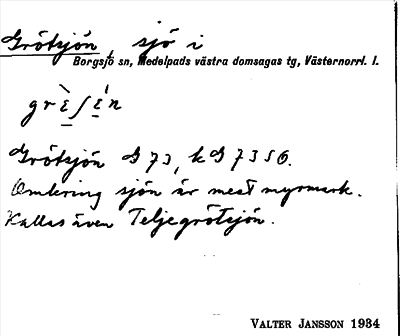 Grötsjön, sjö i
Borgsjö sn, Medelpads västra domsagas tg, Västernorrl. l.
grὲ̠ʃέ̠n
Grötsjön G 73, k G 7356.
Omkring sjön är mest myrmark.
Kallas även Teljegrötsjön.
VALTER JANSSON 1934